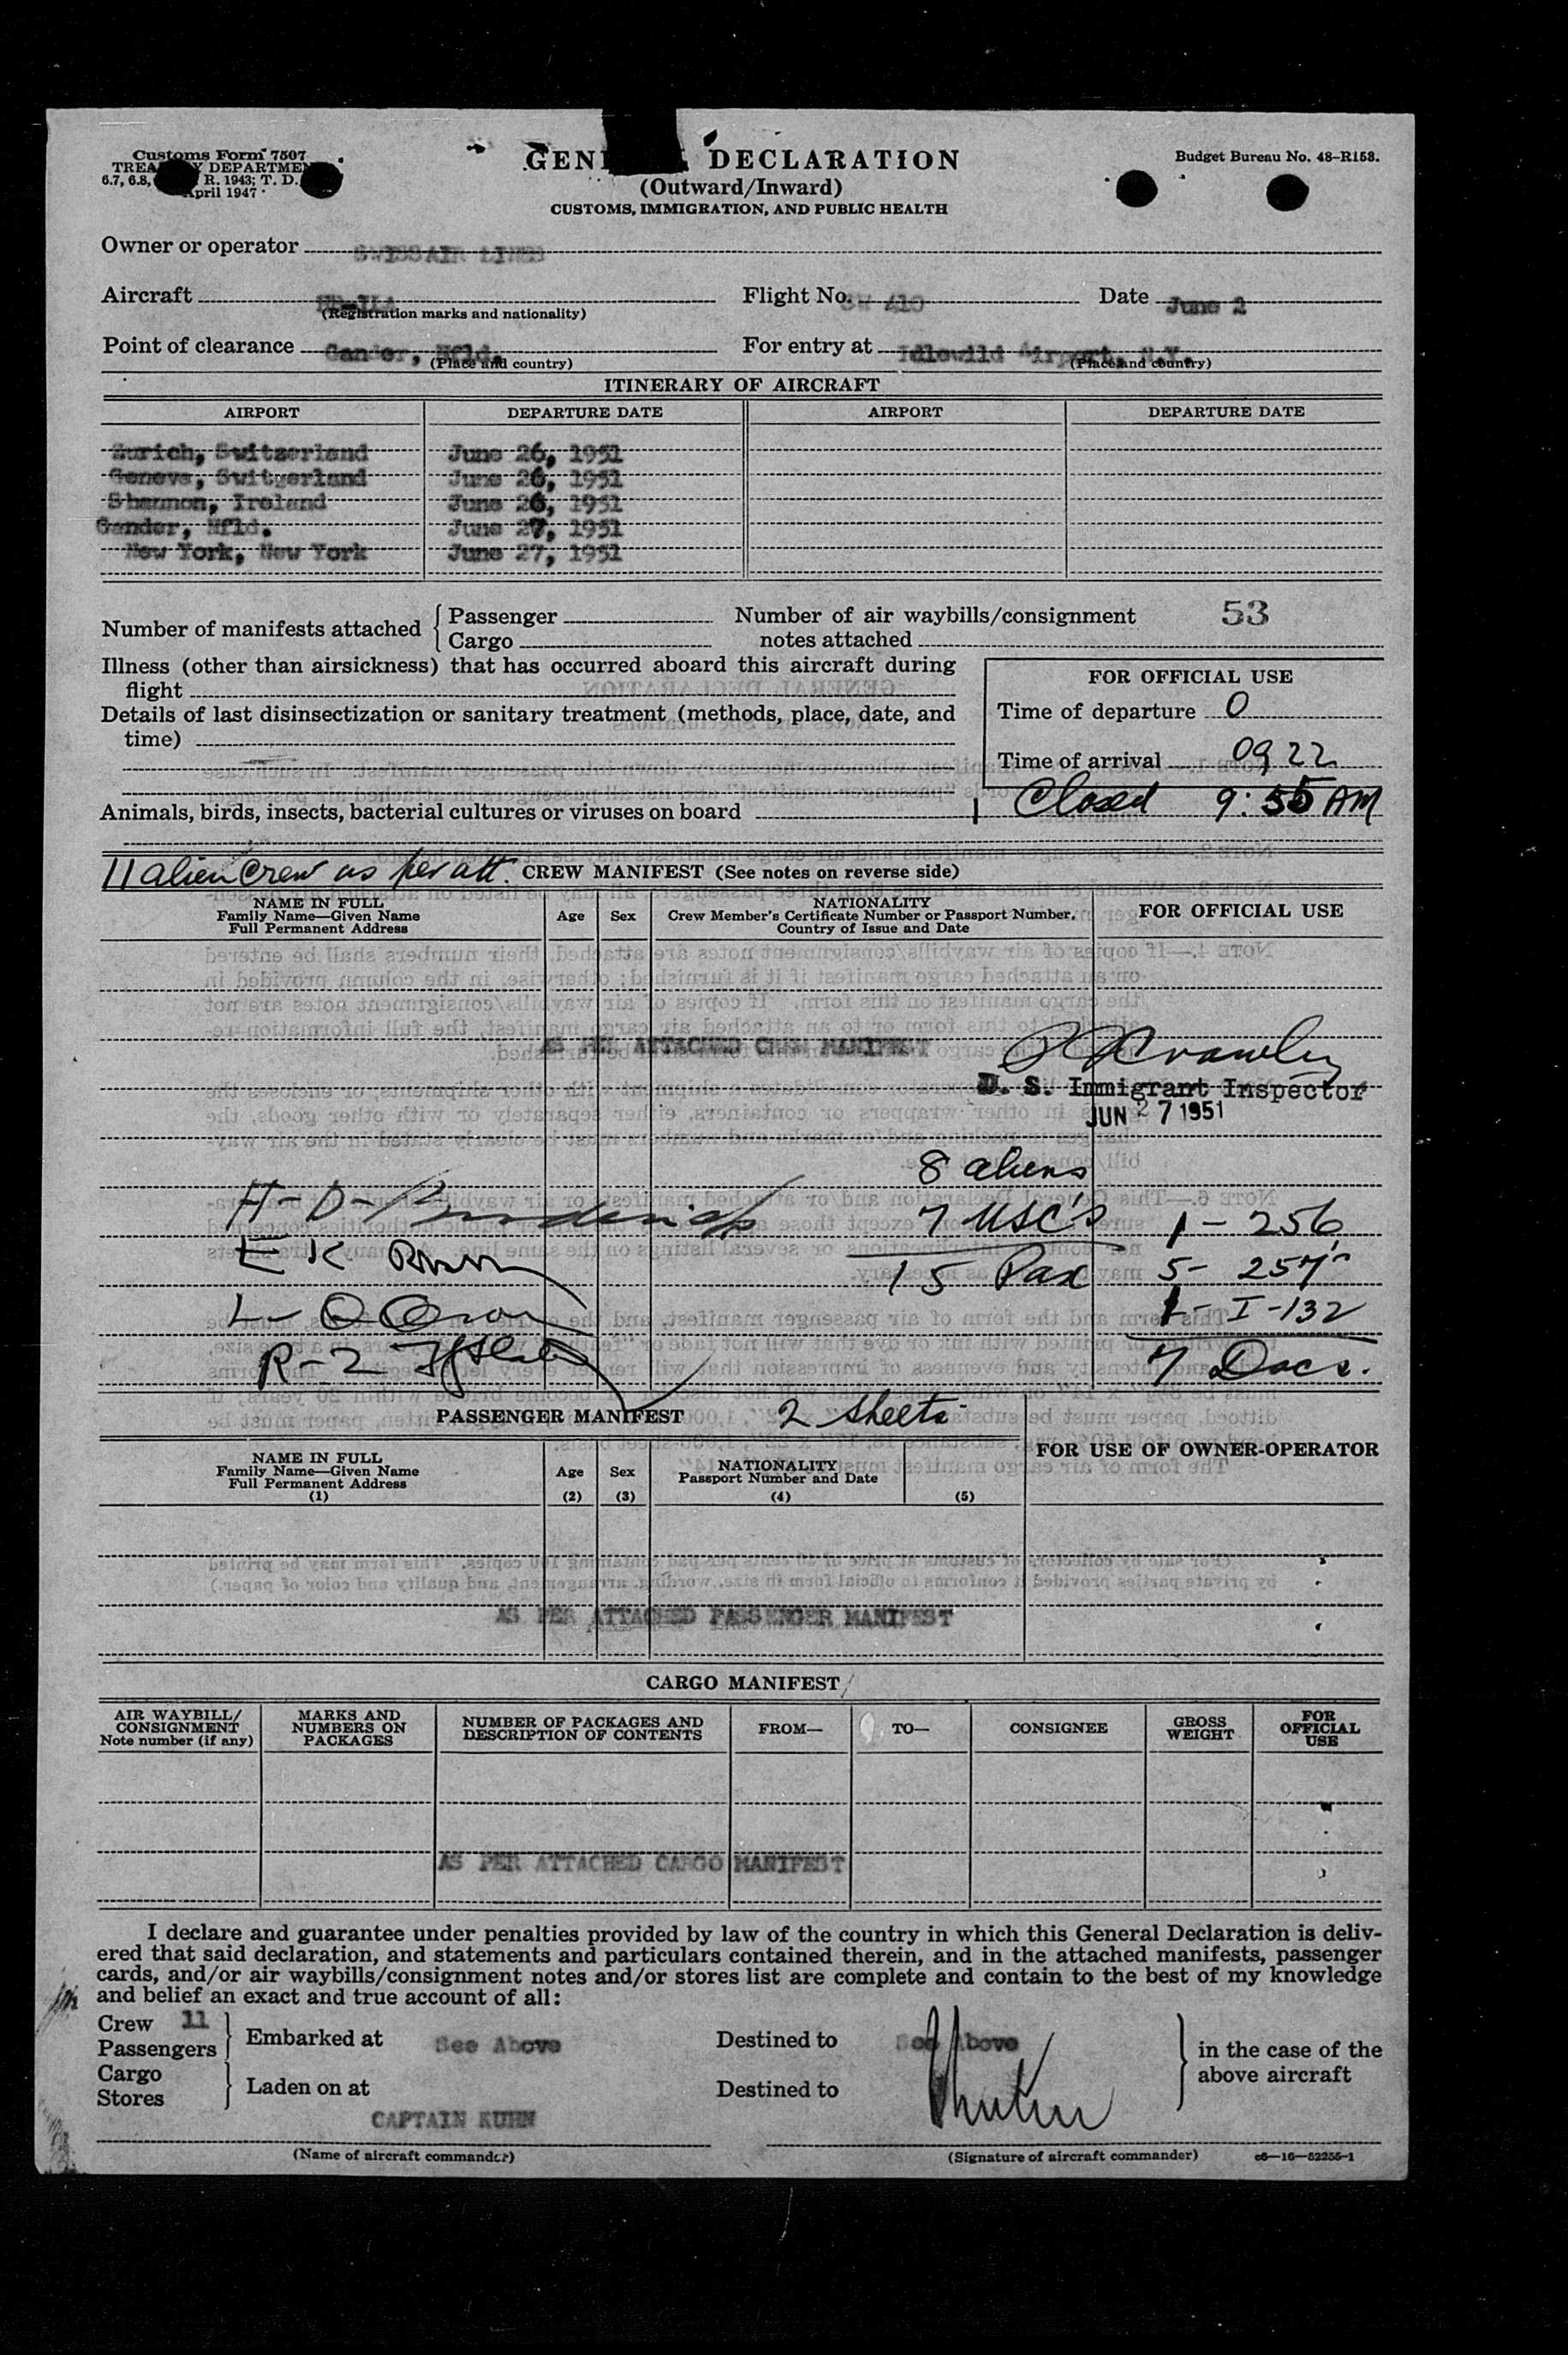 Customs Form 7507
TREA Y DEPARTMEN
6.7, 6.8, R. 1943; T. D.
April 1947
GEN DECLARATION
(Outward/Inward)
CUSTOMS, IMMIGRATION, AND PUBLIC HEALTH
Budget Bureau No. 48-R158.
Owner or operator SWISSAIR LINES
Aircraft
(Registration marks and nationality)
Flight No. SW A10
Date June 2
Point of clearance Gander, Nfld.
(Place and country)
For entry at Idlewild Airport, N.Y.
(Place and country)
ITINERARY OF AIRCRAFT
AIRPORT DEPARTURE DATE AIRPORT DEPARTURE DATE
Zurich, Switzerland June 26, 1951
Geneva, Switgerland June 26, 1951
Shannon, Ireland June 26, 1951
Gander, Nfld. June 27, 1951
New York, New York June 27, 1951
Number of manifests attached { Passenger
Cargo
Number of air waybills/consignment 53
notes attached
Illness (other than airsickness) that has occurred aboard this aircraft during
flight
Details of last disinsectization or sanitary treatment (methods, place, date, and
time)
FOR OFFICIAL USE
Time of departure 0
Time of arrival 0922
Closed 9:55 AM
Animals, birds, insects, bacterial cultures or viruses on board
11 alien Crew as per att. CREW MANIFEST (See notes on reverse side)
NAME IN FULL
Family Name—Given Name
Full Permanent Address
Age
Sex
NATIONALITY
Crew Member's Certificate Number or Passport Number,
Country of Issue and Date
FOR OFFICIAL USE
AS PER ATTACHED CREW MANIFEST
U. S. Immigrant Inspector
JUN 27 1951
8 aliens
H-D-
7 USC's 1-256
E K
15 Pax 5-257
I-132
7 Docs.
PASSENGER MANIFEST 2 sheets
NAME IN FULL
Family Name—Given Name
Full Permanent Address
(1)
Age
(2)
Sex
(3)
NATIONALITY
Passport Number and Date
(4) (5)
FOR USE OF OWNER-OPERATOR
AS PER ATTACHED PASSENGER MANIFEST
CARGO MANIFEST
AIR WAYBILL/
CONSIGNMENT
Note number (if any)
MARKS AND
NUMBERS ON
PACKAGES
NUMBER OF PACKAGES AND
DESCRIPTION OF CONTENTS
FROM—
TO—
CONSIGNEE
GROSS
WEIGHT
FOR
OFFICIAL
USE
AS PER ATTACHED CARGO MANIFEST
I declare and guarantee under penalties provided by law of the country in which this General Declaration is deliv-
ered that said declaration, and statements and particulars contained therein, and in the attached manifests, passenger
cards, and/or air waybills/consignment notes and/or stores list are complete and contain to the best of my knowledge
and belief an exact and true account of all:
Crew 11
Passengers
Embarked at See Above
Destined to See Above
Cargo
Stores
Laden on at
Destined to
in the case of the
above aircraft
CAPTAIN KUHN
(Name of aircraft commander)
(Signature of aircraft commander)
c6—16—52255-1